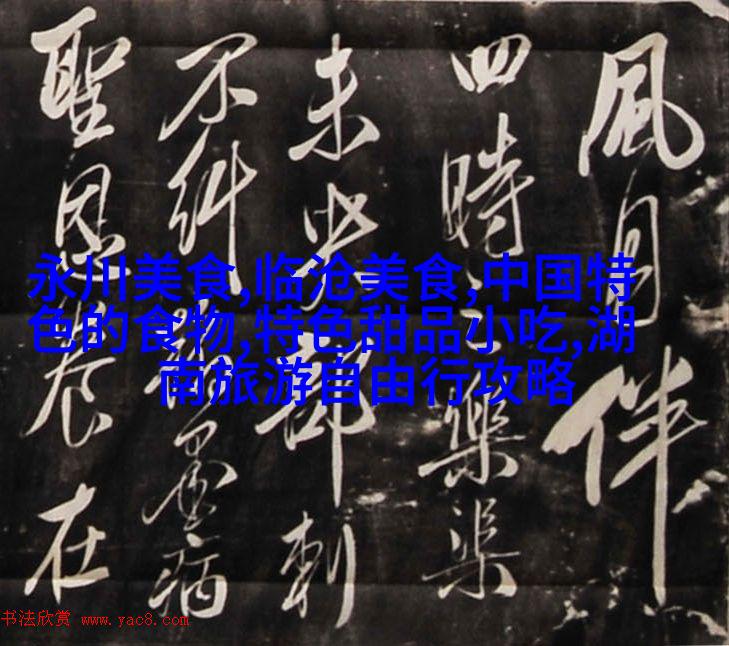 風月伴
四時之樂渠
未央部刺
不糾墨病
聖恩在
永川美食,临沧美食,中国特
色的食物,特色甜品小吃,湖
南旅游自由行攻略
书法欣赏 www.yac8.com